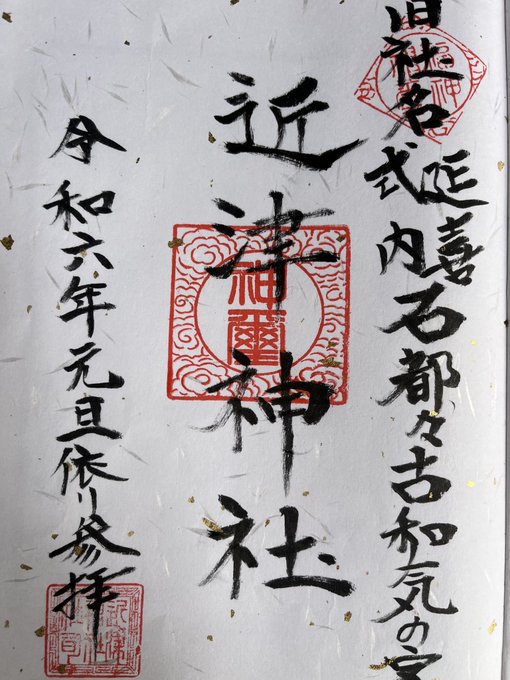 旧社名
延喜
式内 石都々古和気の宮
近津神社
神璽
令和六年元旦依り参拝